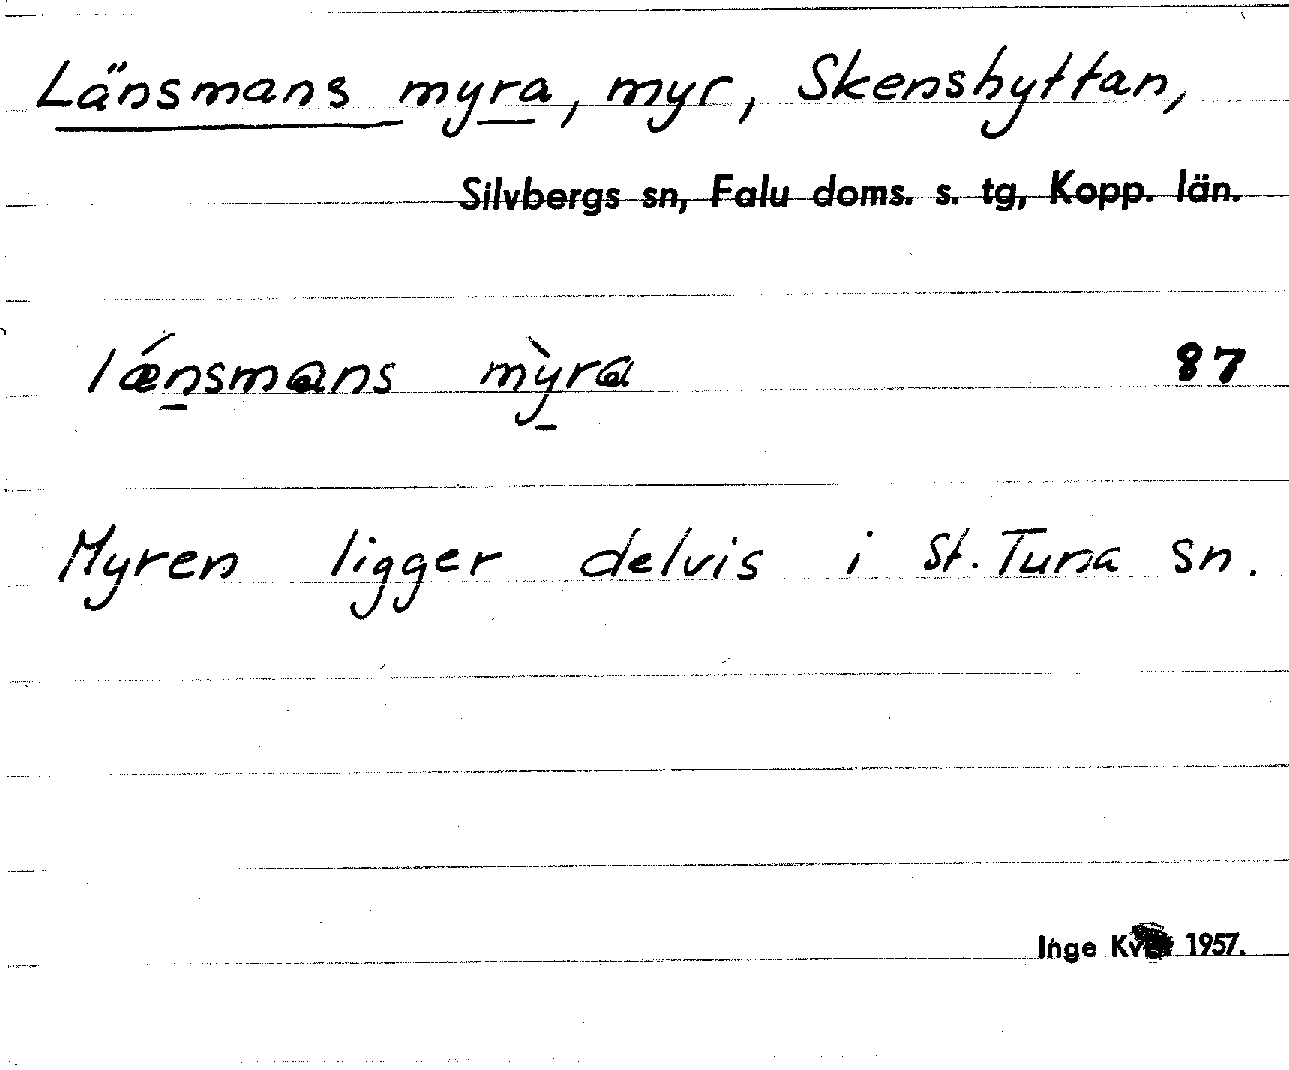 Länsmans myra, myr, Skenshyttan,
Silvbergs sn, Falu doms. s. tg, Kopp. län.
lǽnsmans mỳra 87
Myren ligger delvis i St. Tuna sn.
Inge 1957.